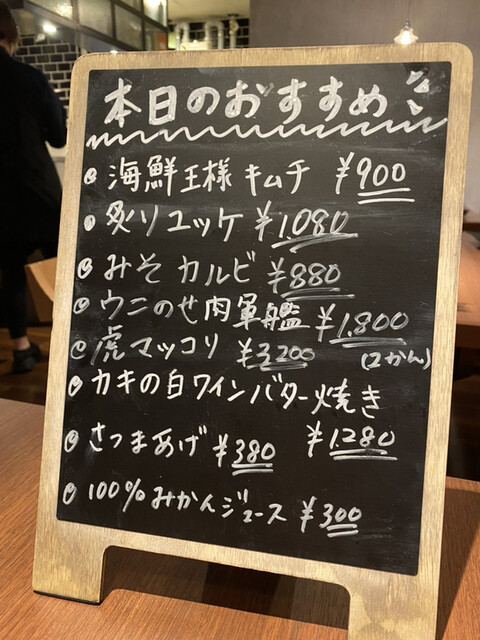 本日のおすすめ
海鮮王様キムチ ¥900
炙りユッケ ¥1,080
みそカルビ ¥880
ウニのせ肉軍艦 ¥1,800
(2かん)
虎マッコリ ¥3200
カキの白ワインバター焼き
¥1280
さつまあげ ¥380
100%みかんジュース ¥300